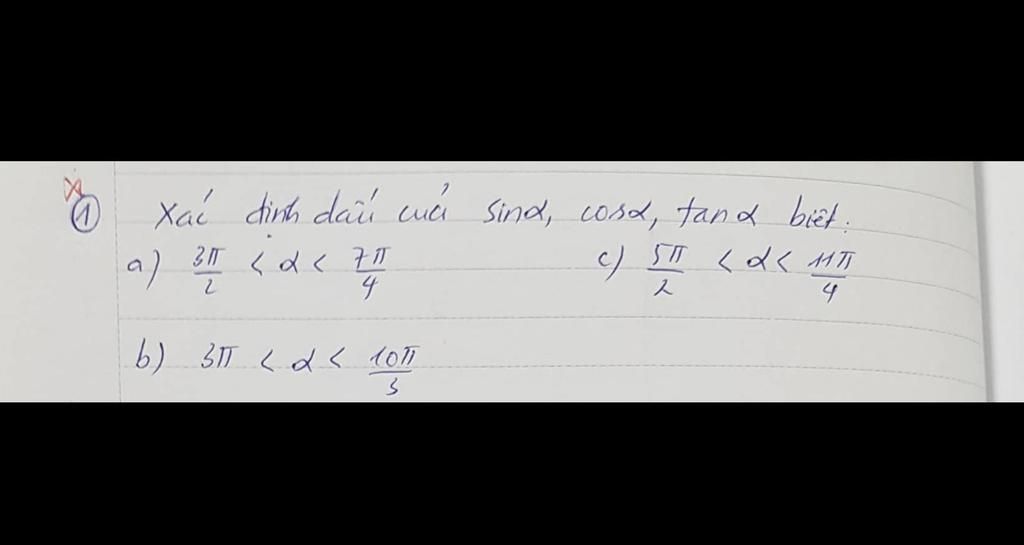 ① Xác định dấu của sinα, cosα, tanα biết:
a) 3π/2 < α < 7π/4 c) 5π/2 < α < 11π/4
b) 3π < α < 10π/3